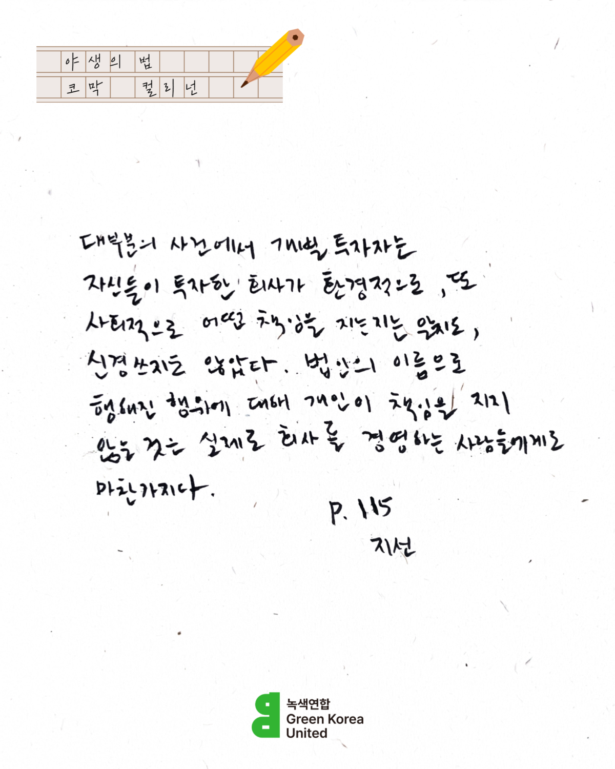 야생의 법
코막 컬리넌
대부분의 사건에서 개별 투자자는
자신들이 투자한 회사가 환경적으로, 또
사회적으로 어떤 책임을 지는지는 알지도,
신경쓰지도 않았다. 법안의 이름으로
행해진 행위에 대해 개인이 책임을 지지
않을 것은 실제로 회사를 경영하는 사람들에게도
마찬가지다.
P. 115
지선
녹색연합
Green Korea
United